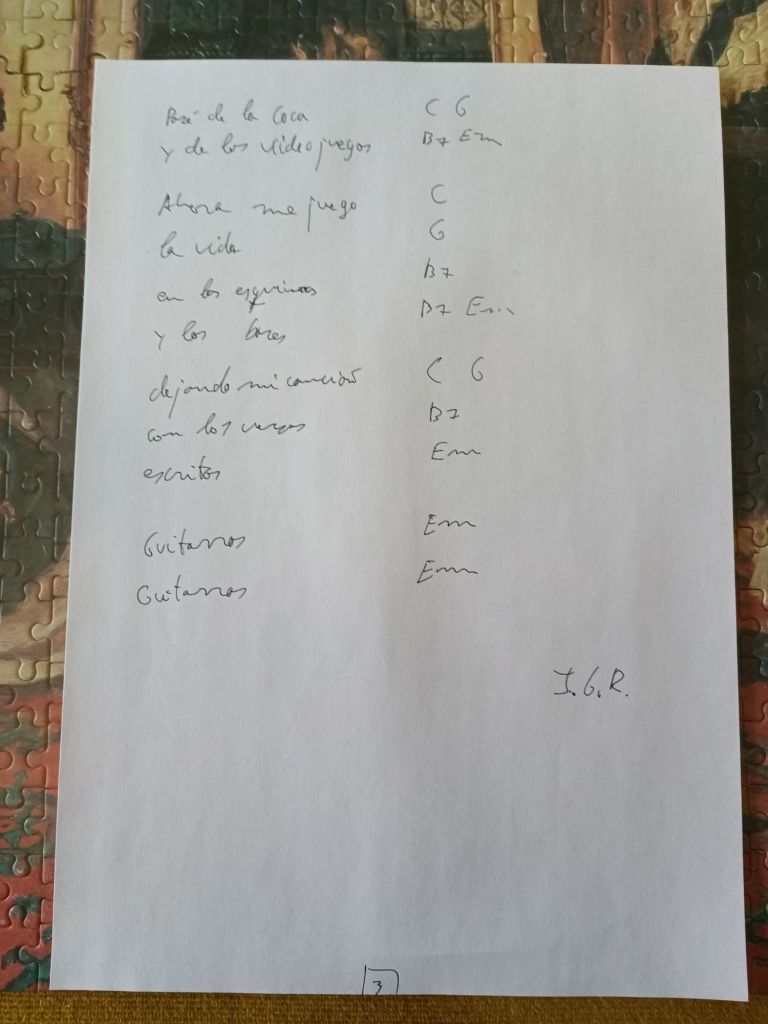 Pasé de la Coca C G
y de los videojuegos B7 Em
Ahora me juego C
la vida G
en las esquinas B7
y los bares B7 Em
dejando mi canción C G
con los versos B7
escritos Em
Guitarras Em
Guitarras Em
I.G.R.
3